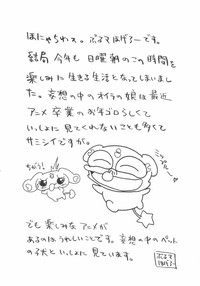 はにゃちわっス。ぷるてほげろーです。
結局 今年も 日曜朝のこの時間を
楽しみに生きる生活となってしまいまし
た。妄想の中のオイラの娘は最近
アニメ卒業のお年ゴロらしくて
いっしょに見てくれないことも多くて
サミシイですが。
ちがう!
でも 楽しみなアニメが
あるのはうれしいことです。妄想の中のペット
の子犬といっしょに見ています。
ぷるて
ほげろー